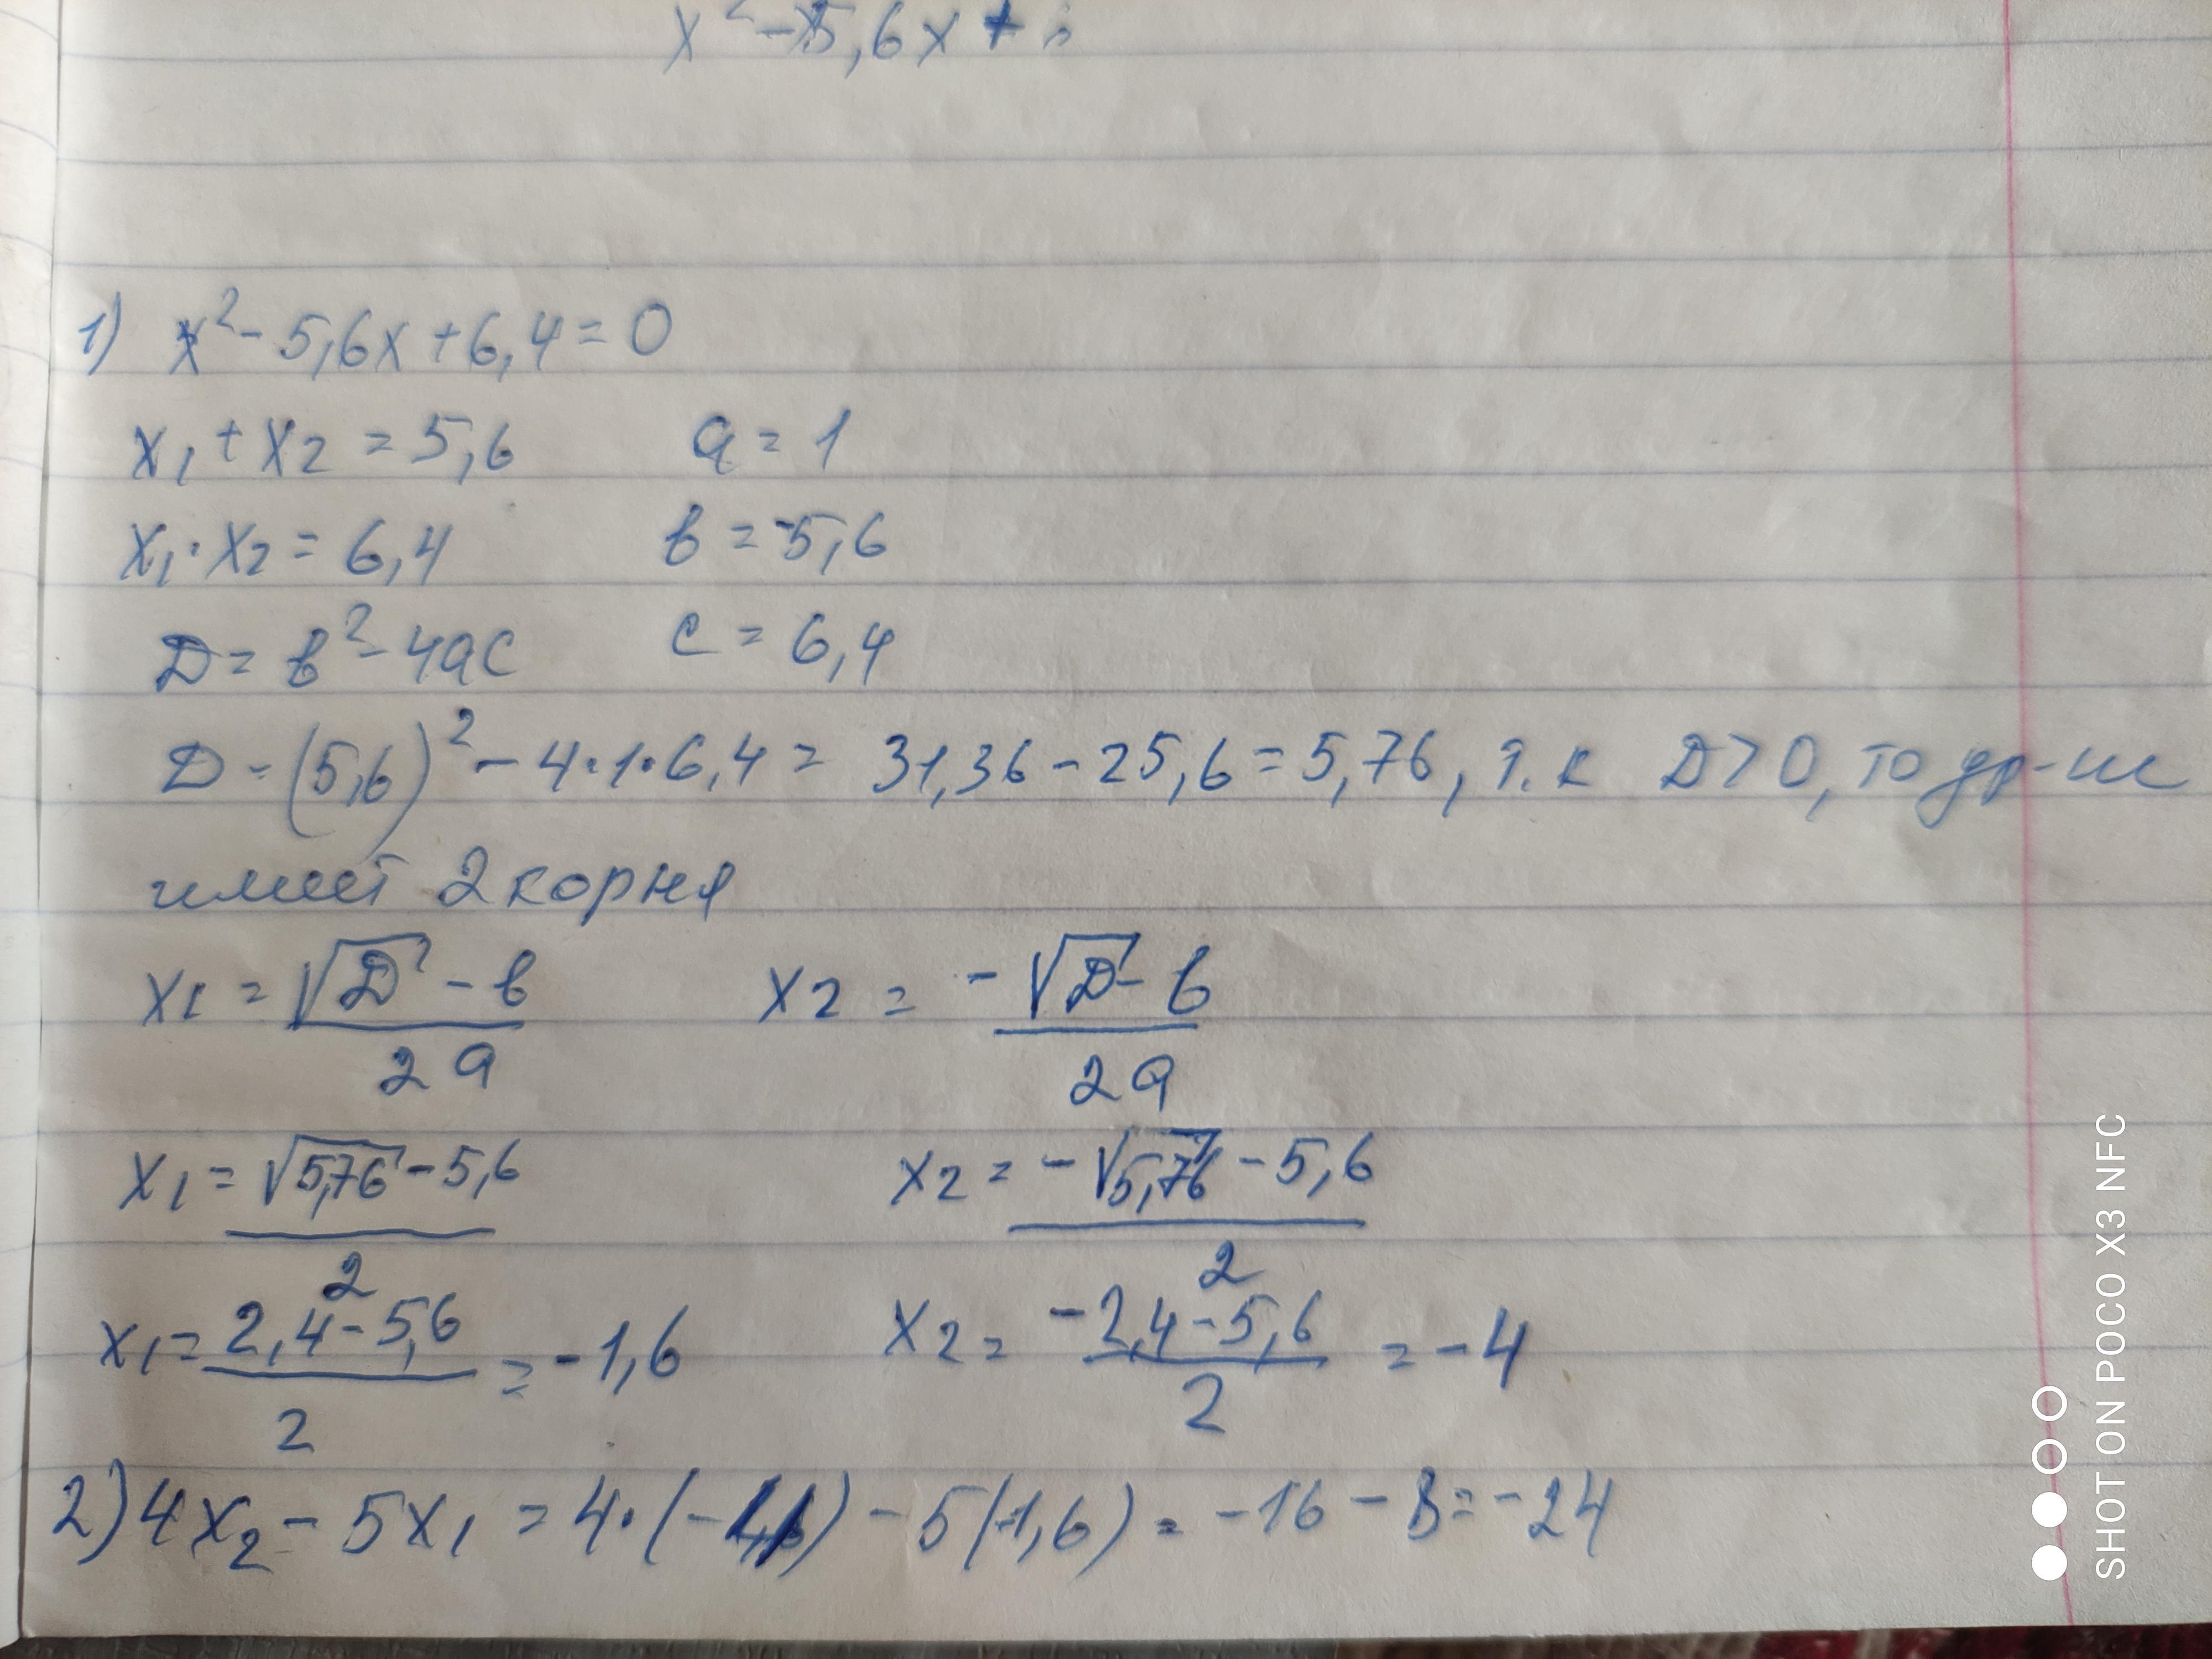 x² - 5,6x +
1) x² - 5,6x + 6,4 = 0
x₁ + x₂ = 5,6 a = 1
x₁ · x₂ = 6,4 в = -5,6
D = в² - 4ac c = 6,4
D = (5,6)² - 4·1·6,4 = 31,36 - 25,6 = 5,76, т.к D > 0, то ур-ие
имеет 2 корня
x₁ = (√D - в)/2a x₂ = (-√D - в)/2a
x₁ = (√5,76 - 5,6)/2 x₂ = (-√5,76 - 5,6)/2
x₁ = (2,4 - 5,6)/2 = -1,6 x₂ = (-2,4 - 5,6)/2 = -4
2) 4x₂ - 5x₁ = 4·(-4) - 5(-1,6) = -16 - 8 = -24
SHOT ON POCO X3 NFC